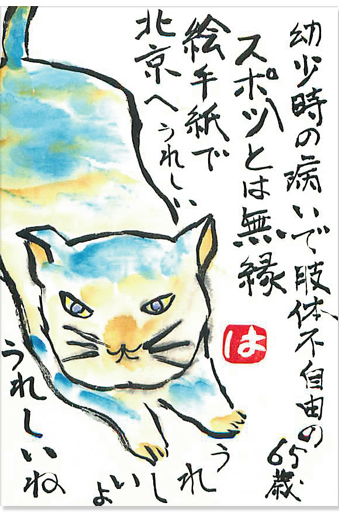 幼少時の病いで肢体不自由の65歳、
スポーツとは無縁
絵手紙で
北京へうれしい
は
うれしいよ
うれしいね